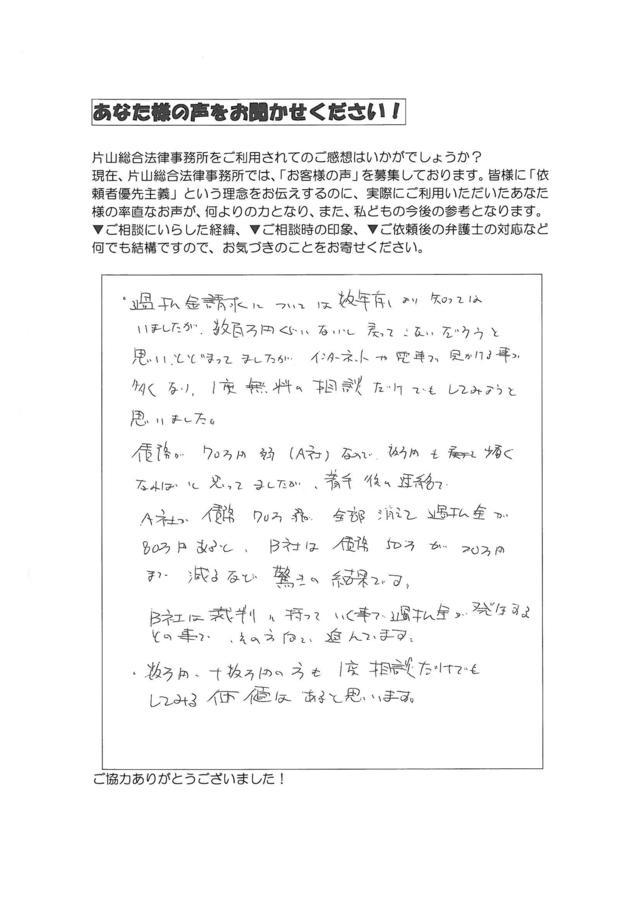 あなた様の声をお聞かせください！
片山総合法律事務所をご利用されてのご感想はいかがでしょうか？
現在、片山総合法律事務所では、「お客様の声」を募集しております。皆様に「依
頼者優先主義」という理念をお伝えするのに、実際にご利用いただいたあなた
様の率直なお声が、何よりの力となり、また、私どもの今後の参考となります。
▼ご相談にいらした経緯、▼ご相談時の印象、▼ご依頼後の弁護士の対応など
何でも結構ですので、お気づきのことをお寄せください。
・過払金請求については数年前より知っては
いましたが、数百万円くらいないと戻ってこないだろうと
思いとどまってましたが インターネットや電車で見かける事が
多くなり、1度無料の相談だけでもしてみようと
思いました。
債務が70万円弱（A社）なので、数万円も
なればと思ってましたが、着手後の連絡で
A社が債務70万 全部消えて過払金が
80万円あると、B社は債務50万が20万円
まで 減るなど 驚きの結果です。
B社は裁判に持っていく事で過払金が発生する
との事で、その方向で進んでいます。
・数万円、十数万円の方も1度相談だけでも
してみる価値はあると思います。
ご協力ありがとうございました！